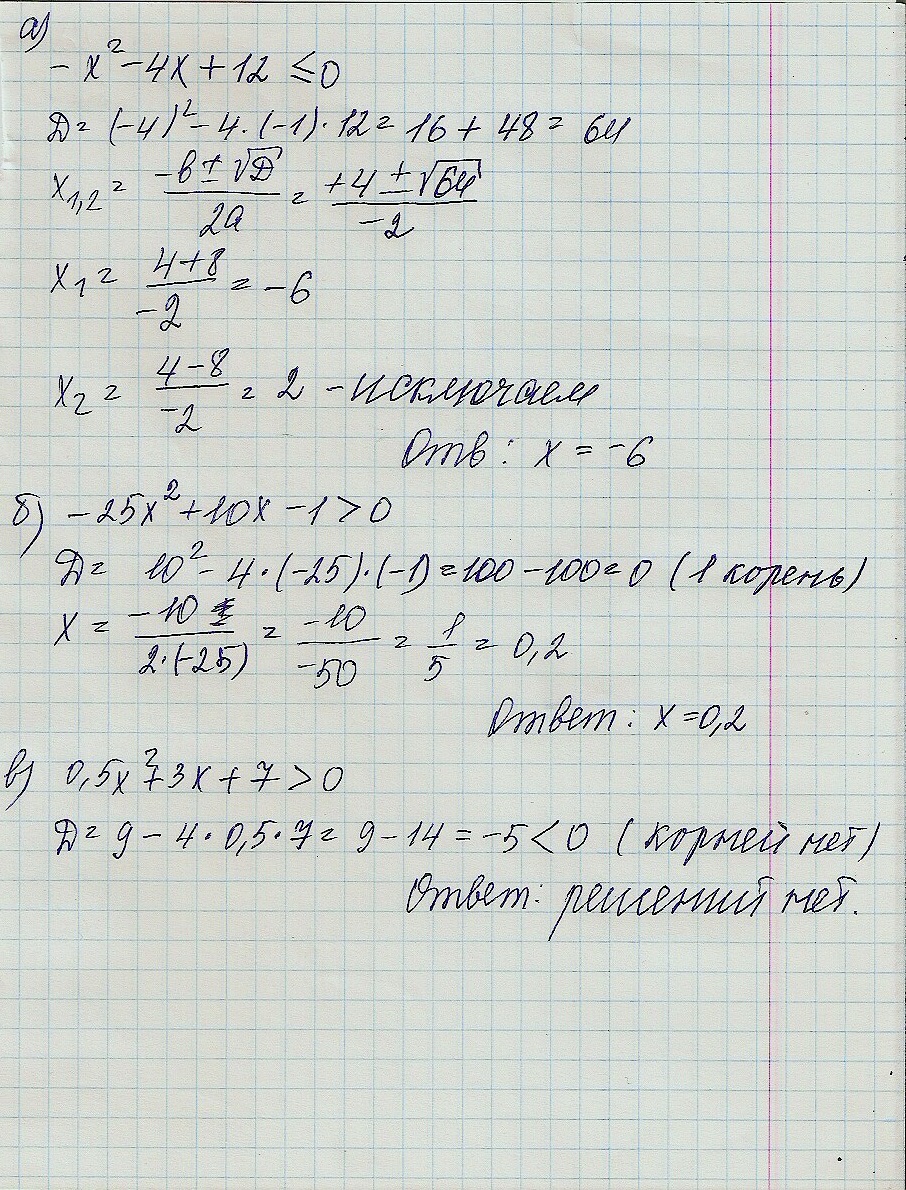 а)
- x² - 4x + 12 ≤ 0
D = (-4)² - 4·(-1)·12 = 16 + 48 = 64
x₁,₂ = (-b ± √D)/(2a) = (+4 ± √64)/(-2)
x₁ = (4+8)/(-2) = -6
x₂ = (4-8)/(-2) = 2 - исключаем
Отв: x = -6
б) -25x² + 10x - 1 > 0
D = 10² - 4·(-25)·(-1) = 100 - 100 = 0 (1 корень)
x = (-10)/(2·(-25)) = (-10)/(-50) = 1/5 = 0,2
Ответ: x = 0,2
в) 0,5x² + 3x + 7 > 0
D = 9 - 4·0,5·7 = 9 - 14 = -5 < 0 (корней нет)
Ответ: решений нет.